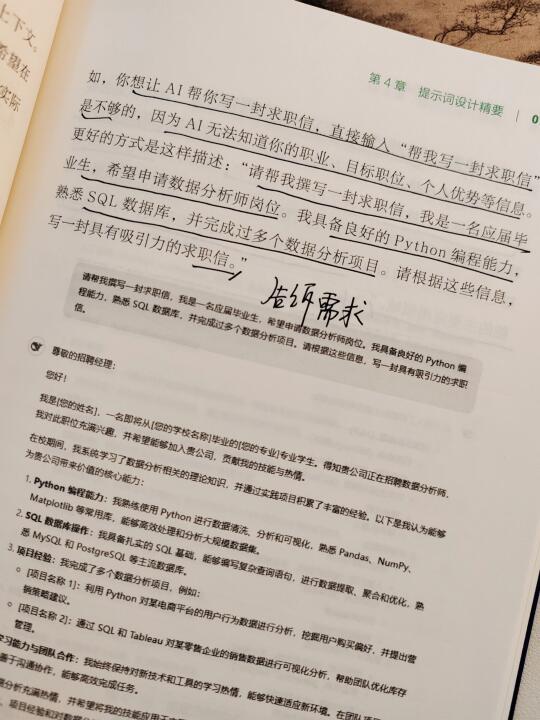 上下文。
希望在
实际
第 4 章 提示词设计精要
0
如，你想让 AI 帮你写一封求职信，直接输入“帮我写一封求职信”
是不够的，因为 AI 无法知道你的职业、目标职位、个人优势等信息。
更好的方式是这样描述：“请帮我撰写一封求职信，我是一名应届毕
业生，希望申请数据分析师岗位。我具备良好的 Python 编程能力，
熟悉 SQL 数据库，并完成过多个数据分析项目。请根据这些信息，
写一封具有吸引力的求职信。”
告诉需求
请帮我撰写一封求职信，我是一名应届毕业生，希望申请数据分析师岗位。我具备良好的 Python 编
程能力，熟悉 SQL 数据库，并完成过多个数据分析项目。请根据这些信息，写一封具有吸引力的求职
信。
尊敬的招聘经理：
您好！
我是[您的姓名]，一名即将从[您的学校名称]毕业的[您的专业]专业学生。得知贵公司正在招聘数据分析师，
我对此职位充满兴趣，并希望能够加入贵公司，贡献我的技能与热情。
在校期间，我系统学习了数据分析相关的理论知识，并通过实践项目积累了丰富的经验。以下是我认为能够
为贵公司带来价值的核心能力：
1. Python 编程能力：我熟练使用 Python 进行数据清洗、分析和可视化，熟悉 Pandas、NumPy、
Matplotlib 等常用库，能够高效处理和分析大规模数据集。
2. SQL 数据库操作：我具备扎实的 SQL 基础，能够编写复杂查询语句，进行数据提取、聚合和优化，熟
悉 MySQL 和 PostgreSQL 等主流数据库。
3. 项目经验：我完成了多个数据分析项目，例如：
○ [项目名称 1]：利用 Python 对某电商平台的用户行为数据进行分析，挖掘用户购买偏好，并提出营
销策略建议。
○ [项目名称 2]：通过 SQL 和 Tableau 对某零售企业的销售数据进行可视化分析，帮助团队优化库存
管理。
学习能力与团队合作：我始终保持对新技术和工具的学习热情，能够快速适应新环境。在团队项目
善于沟通协作，能够高效完成任务。
据分析充满热情，并希望将我的技能应用于
项目经验和对数据